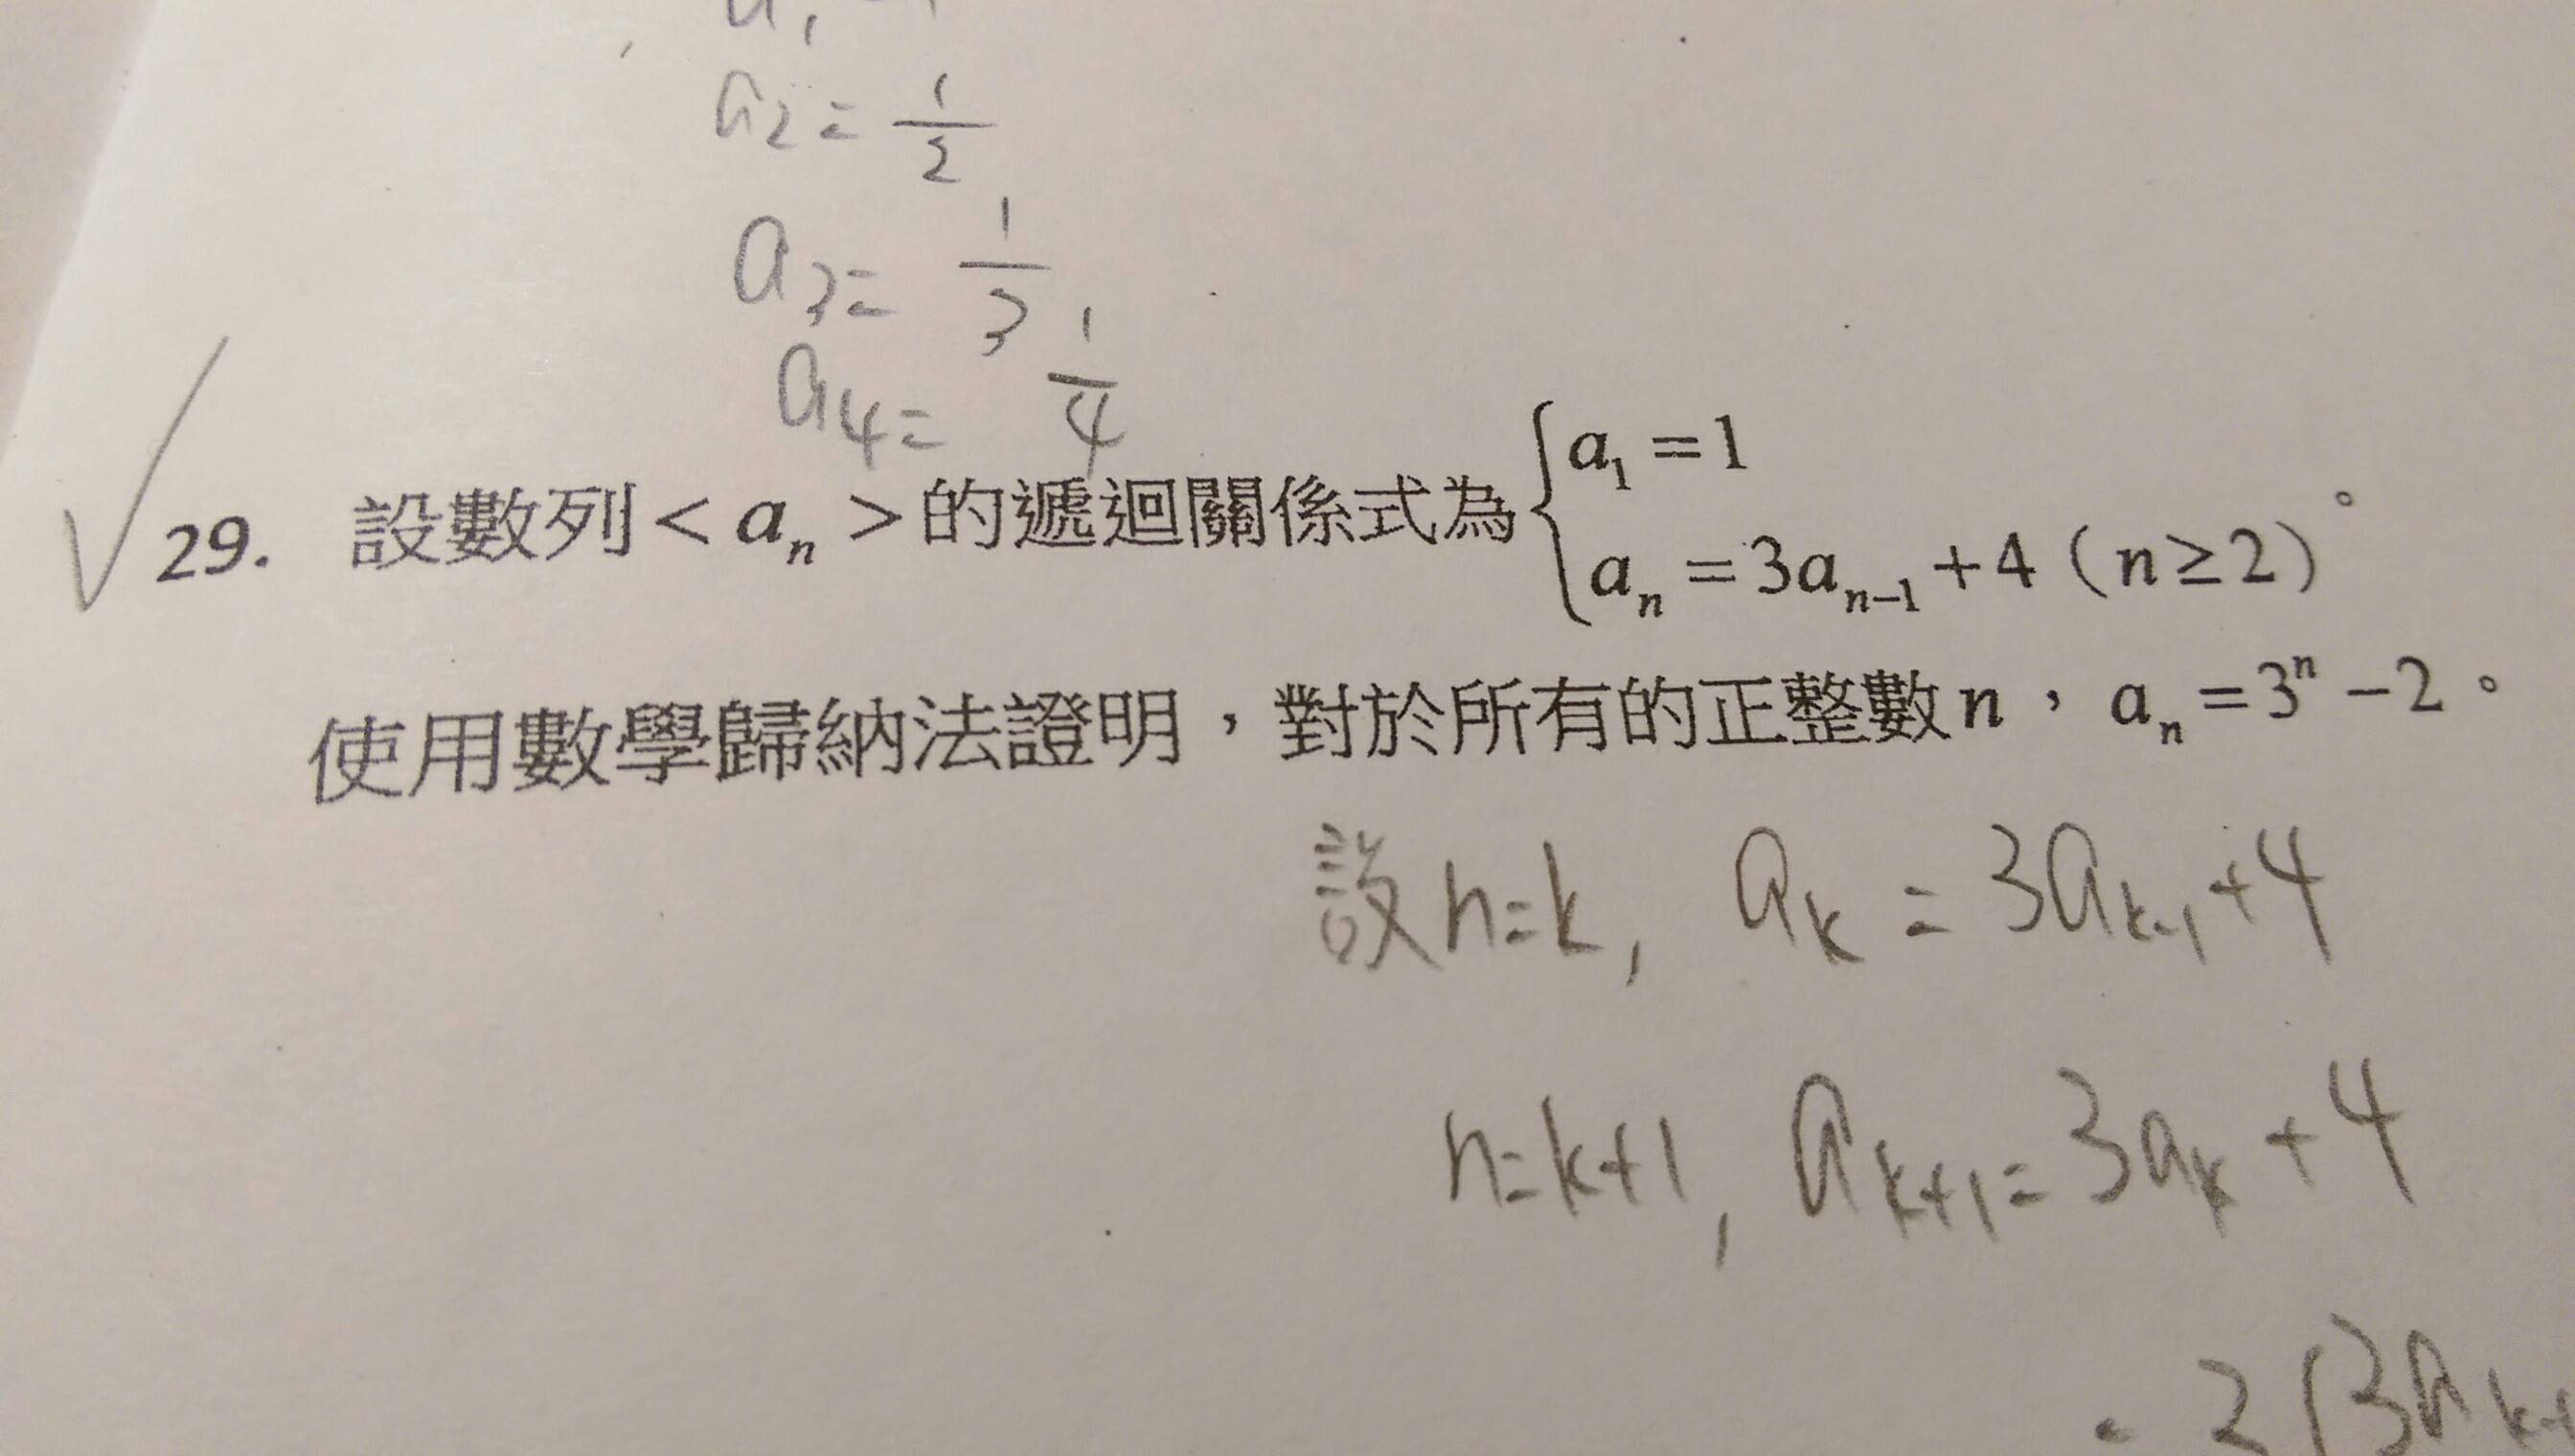 a₂ = 1/2
a₃ = 1/3
a₄ = 1/4
29. 設數列 < aₙ > 的遞迴關係式為 { a₁ = 1
aₙ = 3aₙ₋₁ + 4 ( n ≥ 2 ) 。
使用數學歸納法證明，對於所有的正整數 n ， aₙ = 3ⁿ − 2 。
設 n=k, aₖ = 3aₖ₋₁ + 4
n=k+1, aₖ₊₁ = 3aₖ + 4